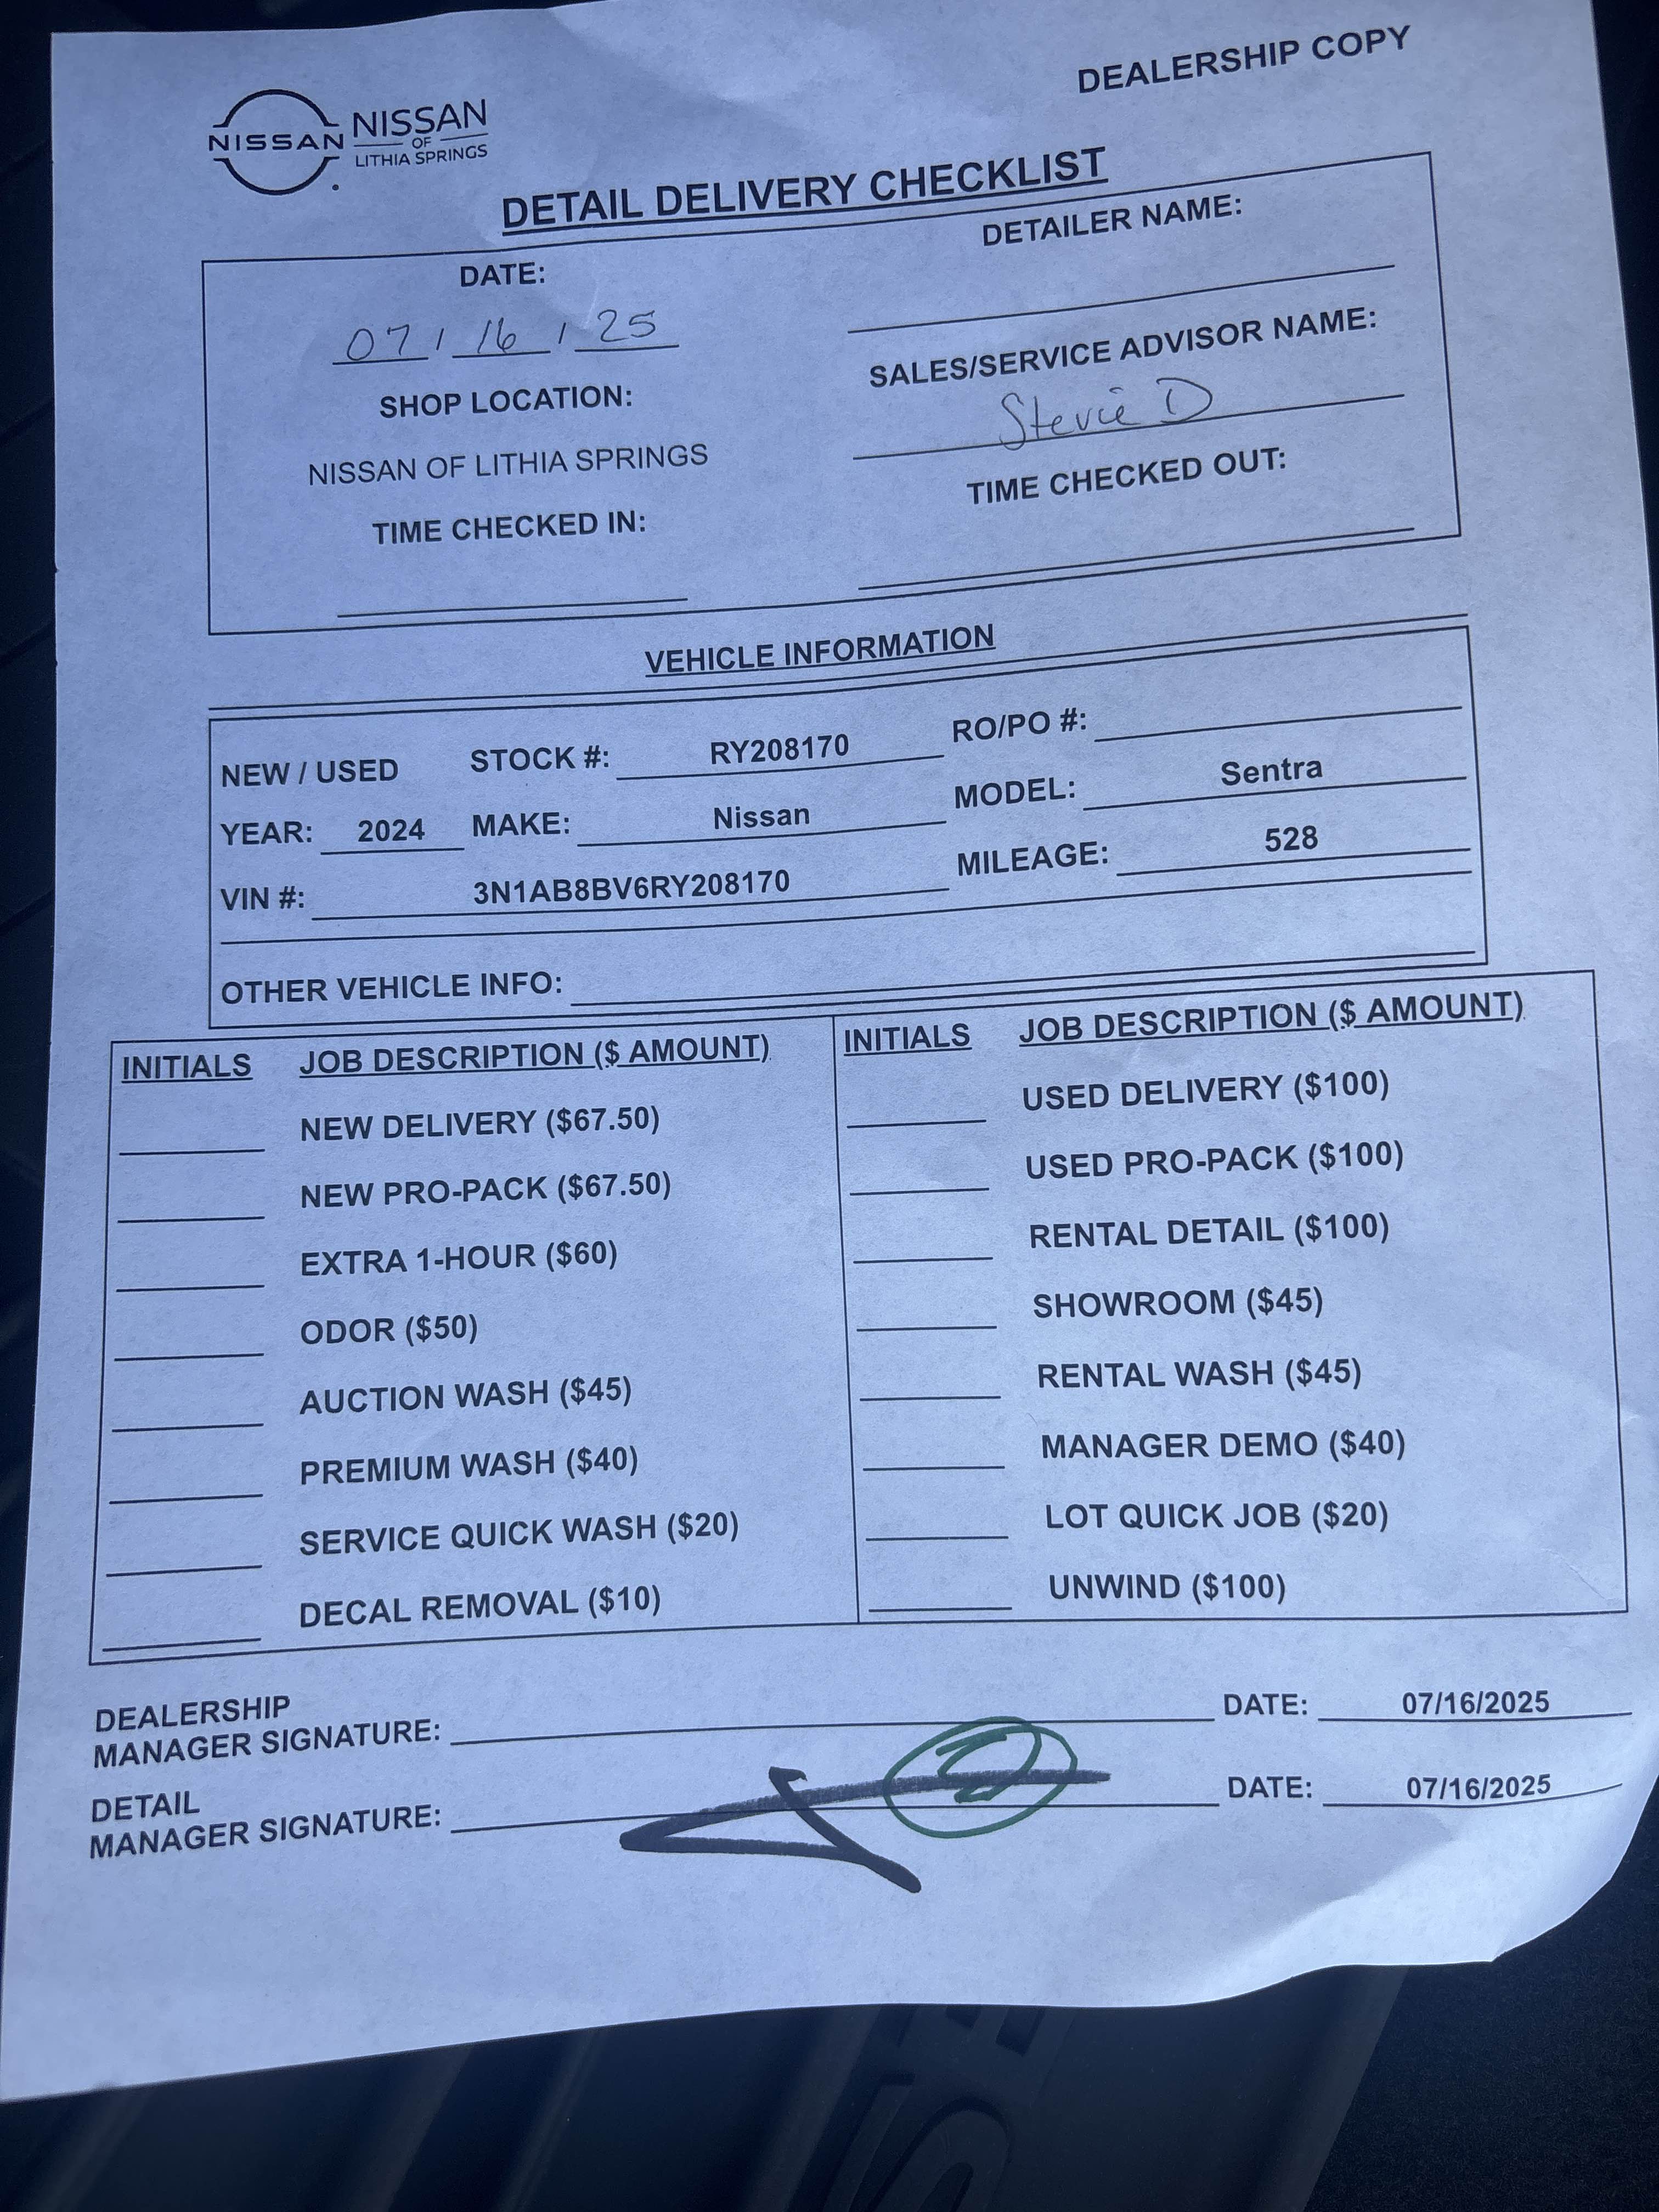 DEALERSHIP COPY
NISSAN NISSAN
OF
LITHIA SPRINGS
DETAIL DELIVERY CHECKLIST
DATE:
07 / 16 / 25
SHOP LOCATION:
NISSAN OF LITHIA SPRINGS
TIME CHECKED IN:
DETAILER NAME:
SALES/SERVICE ADVISOR NAME:
Stevie D
TIME CHECKED OUT:
VEHICLE INFORMATION
NEW / USED STOCK #: RY208170 RO/PO #:
YEAR: 2024 MAKE: Nissan MODEL: Sentra
VIN #: 3N1AB8BV6RY208170 MILEAGE: 528
OTHER VEHICLE INFO:
INITIALS JOB DESCRIPTION ($ AMOUNT)
NEW DELIVERY ($67.50)
NEW PRO-PACK ($67.50)
EXTRA 1-HOUR ($60)
ODOR ($50)
AUCTION WASH ($45)
PREMIUM WASH ($40)
SERVICE QUICK WASH ($20)
DECAL REMOVAL ($10)
INITIALS JOB DESCRIPTION ($ AMOUNT)
USED DELIVERY ($100)
USED PRO-PACK ($100)
RENTAL DETAIL ($100)
SHOWROOM ($45)
RENTAL WASH ($45)
MANAGER DEMO ($40)
LOT QUICK JOB ($20)
UNWIND ($100)
DEALERSHIP
MANAGER SIGNATURE: DATE: 07/16/2025
DETAIL
MANAGER SIGNATURE: DATE: 07/16/2025